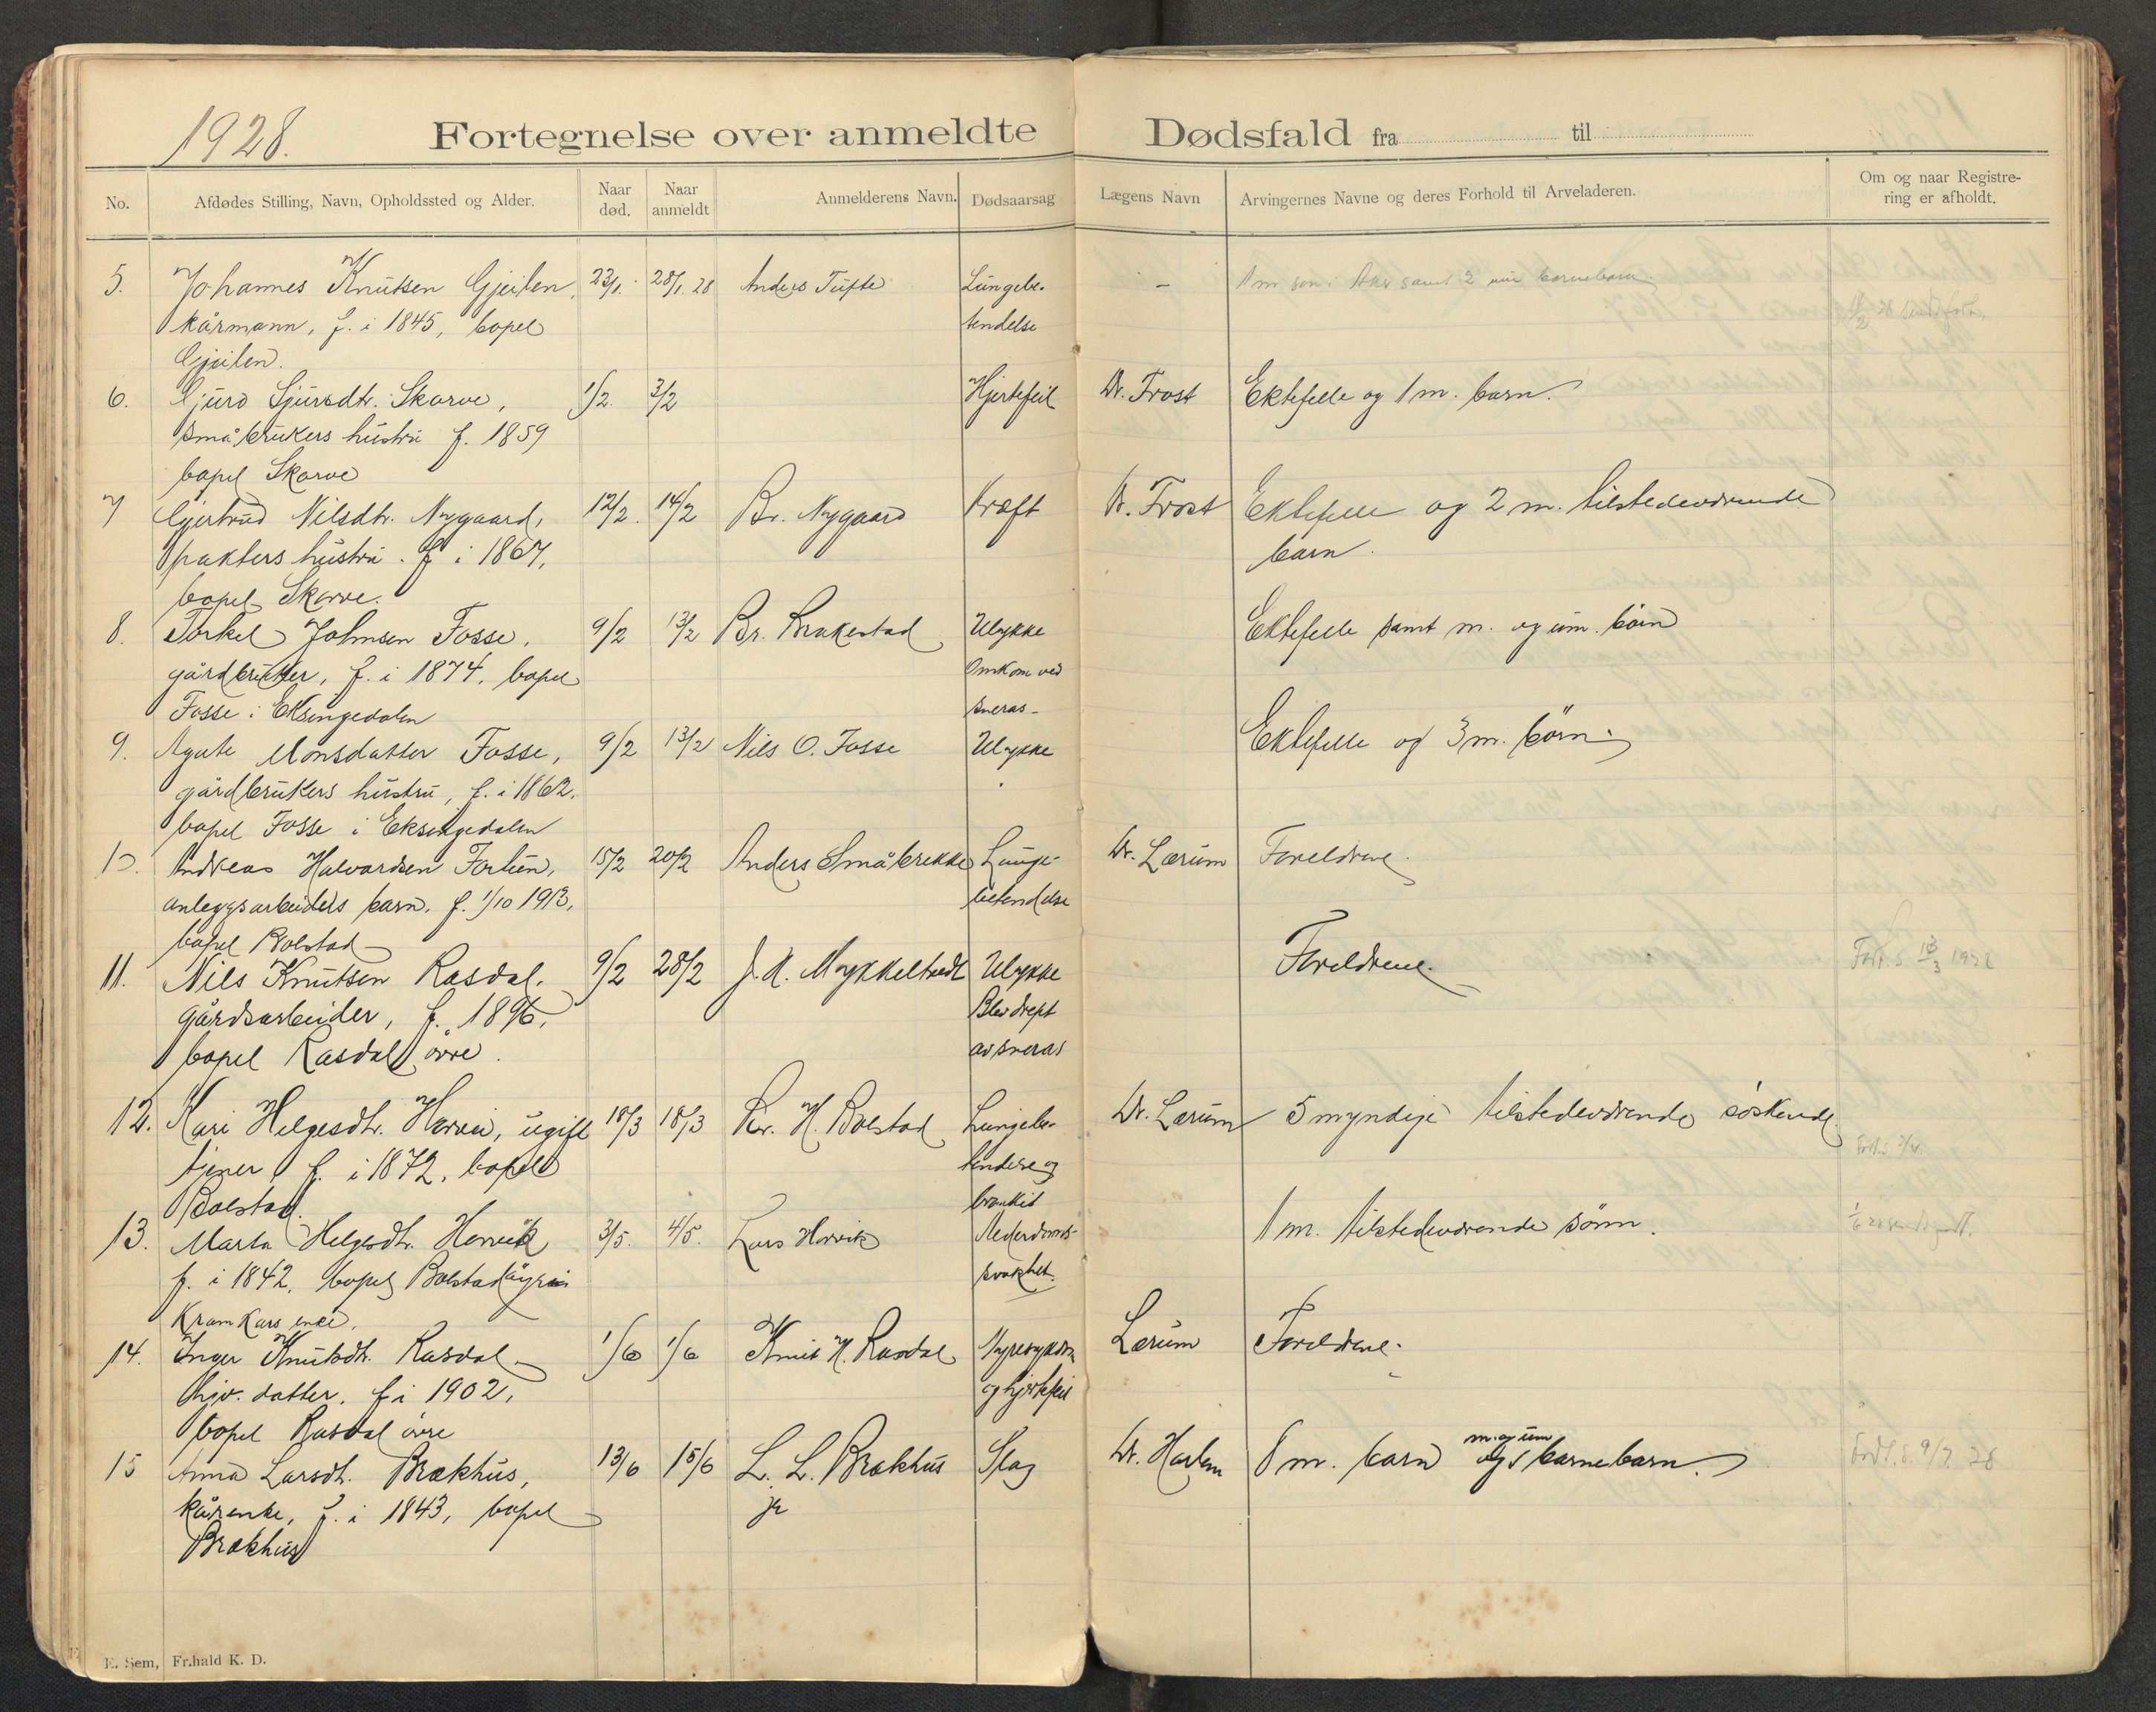 1928.
Fortegnelse over anmeldte Dødsfald fra til
No. Afdødes Stilling, Navn, Opholdssted og Alder. Naar død. Naar anmeldt Anmelderens Navn. Dødsaarsag Lægens Navn Arvingernes Navne og deres Forhold til Arveladeren. Om og naar Registrering er afholdt.
5. Johannes Knutsen Gjeilen, 23/1. 28/1 28 Anders Tufte Lungebe- –
kårmann, f. i 1845, bopel tendelse
Gjeilen.
6. Gjuro Sjursdtr. Skorve, 1/2. 3/2 Hjertefeil Dr. Frost Ektefelle og 1 m. barn.
småbrukers hustru f. 1859
bopel Skorve
7 Gjertrud Nilsdtr. Nygaard, 12/2. 14/2 Br. Nygaard Kræft Dr. Frost Ektefelle og 2 m. tilstedeværende
pakters hustru. f. i 1867, barn.
bopel Skorve.
8. Torkel Johnsen Fosse, 9/2 13/2 Br. Brakestad Ulykke Ektefelle samt m. og um. børn
gårdbruker, f. i 1874, bopel Omkom ved
Fosse i Eksingedalen sneras-
9. Agate Monsdatter Fosse, 9/2 13/2 Nils O. Fosse Ulykke Ektefelle og 3 m. børn.
gårdbrukers hustru, f. i 1862, "
bopel Fosse i Eksingedalen
10. Andreas Halvardsen Fortun, 15/2 20/2 Anders Småbrekke Lunge- Dr. Lærum Foreldrene.
anleggsarbeiders barn. f. 1/10 1913, betendelse
bopel Bolstad
11. Nils Knutsen Rasdal. 9/2 28/2 J. K. Mykkeltvedt Ulykke Foreldrene.
gårdsarbeider, f. 1896, Blev drept
bopel Rasdal øvre. av sneras
12. Kari Helgesdtr. Horvei, ugift 18/3 18/3 Kr. H. Bolstad Lungebe- Dr. Lærum 5 myndige tilstedeværende søskende.
tjener f. i 1872, bopel tendelse og
Bolstad. bronkit
13. Marta Helgesdtr. Horvik 3/5. 4/5. Lars Horvik Alderdoms- 1 m. tilstedeværende sønn.
f. i 1842, bopel Bolstadøyri svakhet.
Kramkars enke.
14. Inger Knutsdtr. Rasdal 1/6 1/6 Knut H. Rasdal Nyresykdom Lærum Foreldrene.
hjv. datter, f i 1902, og hjertefeil
bopel Rasdal øvre
15 Anna Larsdt. Brækhus, 13/6 15/6 L. L. Brækhus Slag Dr. Harlem 8 m. barn og m. og um barnebarn.
kårenke, f. i 1843, bopel jr
Brækhus
E. Sem, Fr.hald K. D.